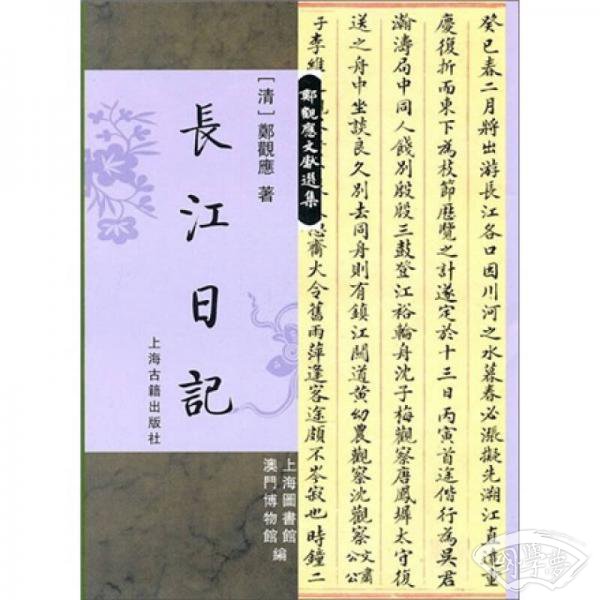 癸巳春二月將出游長江各口因川河之水暮春必漲擬先溯江直達重
慶復折而東下為枝節歷覽之計遂定於十三日丙寅首途偕行為吳君
瀚濤局中同人餞別殷殷三鼓登江裕輪舟沈子梅觀察唐鳳墀太守復
送之舟中坐談良久別去同舟則有鎮江關道黃幼農觀察沈觀察文肅公公
子李維
忌齋大令舊雨萍逢客途頗不岑寂也時鐘二
鄭觀應文獻選集
[清]鄭觀應 著
長江日記
上海古籍出版社
上海圖書館
澳門博物館 編
国学梦